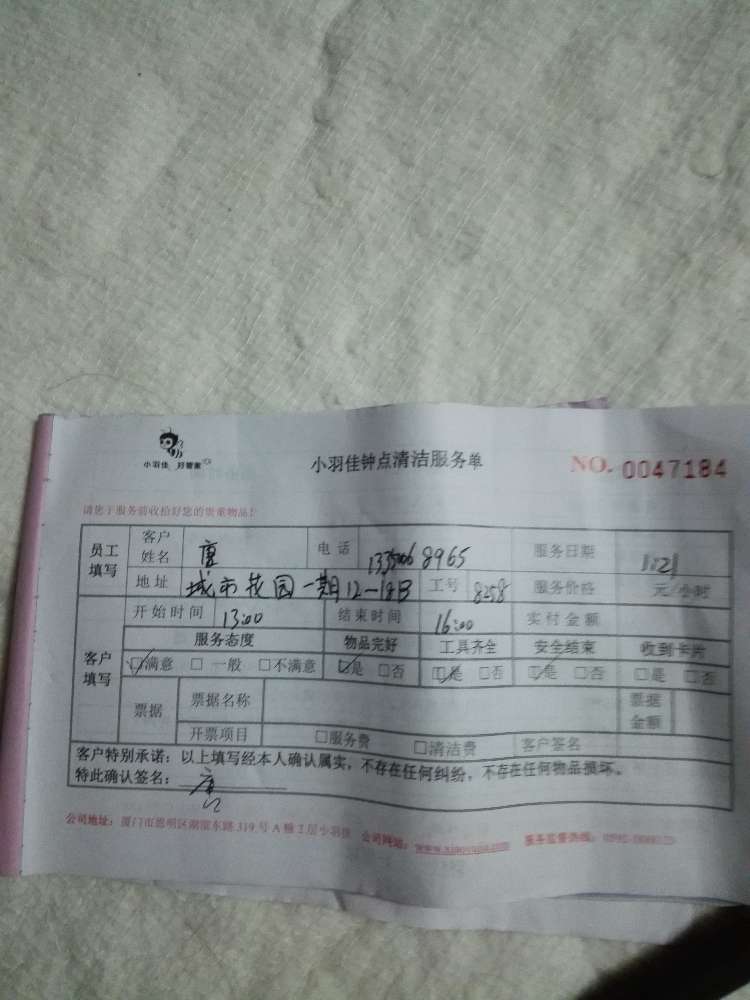 小羽佳 好管家
小羽佳钟点清洁服务单
NO. 0047184
请您于服务前收拾好您的贵重物品!
员工填写 客户姓名 唐 电话 服务日期 1.21
地址 城市花园一期12-18B 工号 8258 服务价格 元/小时
客户填写 开始时间 13:00 结束时间 16:00 实付金额
服务态度 物品完好 工具齐全 安全结束 收到卡片
☑满意 □一般 □不满意 ☑是 □否 ☑是 □否 ☑是 □否 □是 □否
票据 票据名称 票据金额
开票项目 □服务费 □清洁费 客户签名
客户特别承诺:以上填写经本人确认属实,不存在任何纠纷,不存在任何物品损坏。
特此确认签名:唐
公司地址:厦门市思明区湖滨东路319号A幢2层小羽佳 公司网站: 服务监督热线: